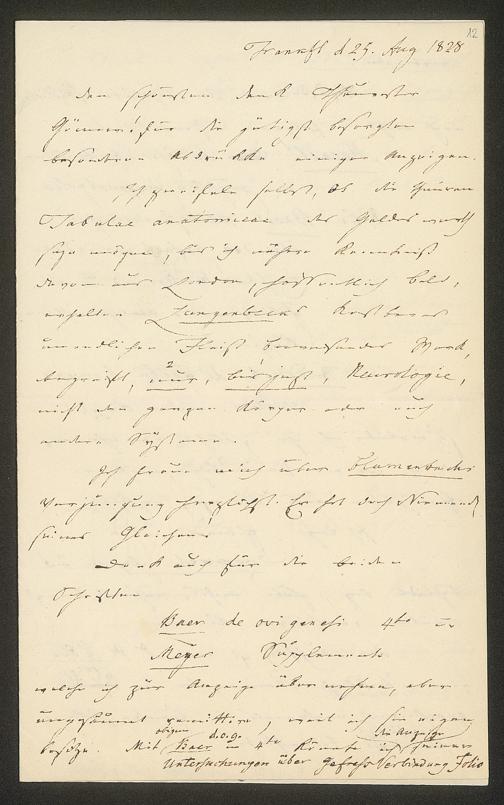 12
Frankft d 25. Aug 1828
den schönsten Dank Theuerster
Gönner! für die gütigst besorgten
besondern Abdrücke einiger Anzeigen.
Ich zweifele selbst, ob die theuren
Tabulae anatomicae des Geldes werth
seyn mögen, bis ich nähere Kenntniß
davon aus London, hoffentlich bald,
erhalte. Langenbecks Kostbares
unendlichen Fleiß beweisendes Werk,
begreift, nur, bis jetzt, Neurologie,
nicht den ganzen Körper oder auch
andere Systeme.
Ich freue mich über Blumenbachs
Verjüngung herzlichst. Er hat doch Niemand
seines Gleichen!
Dank auch für die beiden
Schriften
Baer de ovi genesi 4to u
Meyer Supplemente
welche ich zur Anzeige übernehme, aber
ungesäumt remittire, weil ich sie eigen
besitze. Mit Baer 4to könnte ich die Anzeige seiner
Untersuchungen über Gefäss Verbindung Folio